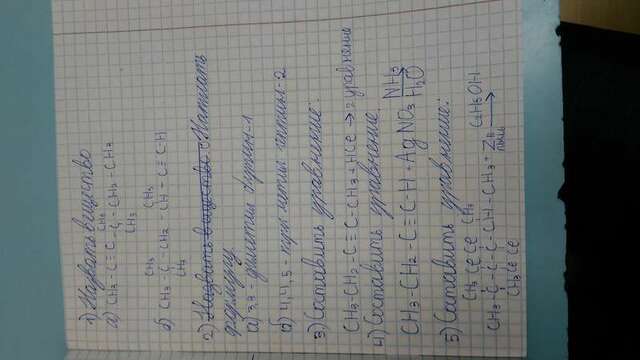 1) Назвать вещество
CH3
а) CH3 - C ≡ C - C - CH2 - CH3
CH3
CH3 CH3
б) CH3 - C - CH2 - CH - C ≡ C - H
CH3
2) Назвать вещество Написать
формулу
а) 3,3 - диметил бутин-1
б) 4,4,5 - три метил гептин-2
3) Составить уравнение:
CH3 - CH2 - C ≡ C - CH3 + HCl → 2 уравнения
4) Составить уравнение.
NH3
CH3 - CH2 - C ≡ C - H + AgNO3 →
H2O
5) Составить уравнение:
CH3 Cl Cl CH3
CH3 - C - C - C - CH - CH3 + Zn C2H5OH →
CH3 Cl Cl пыль